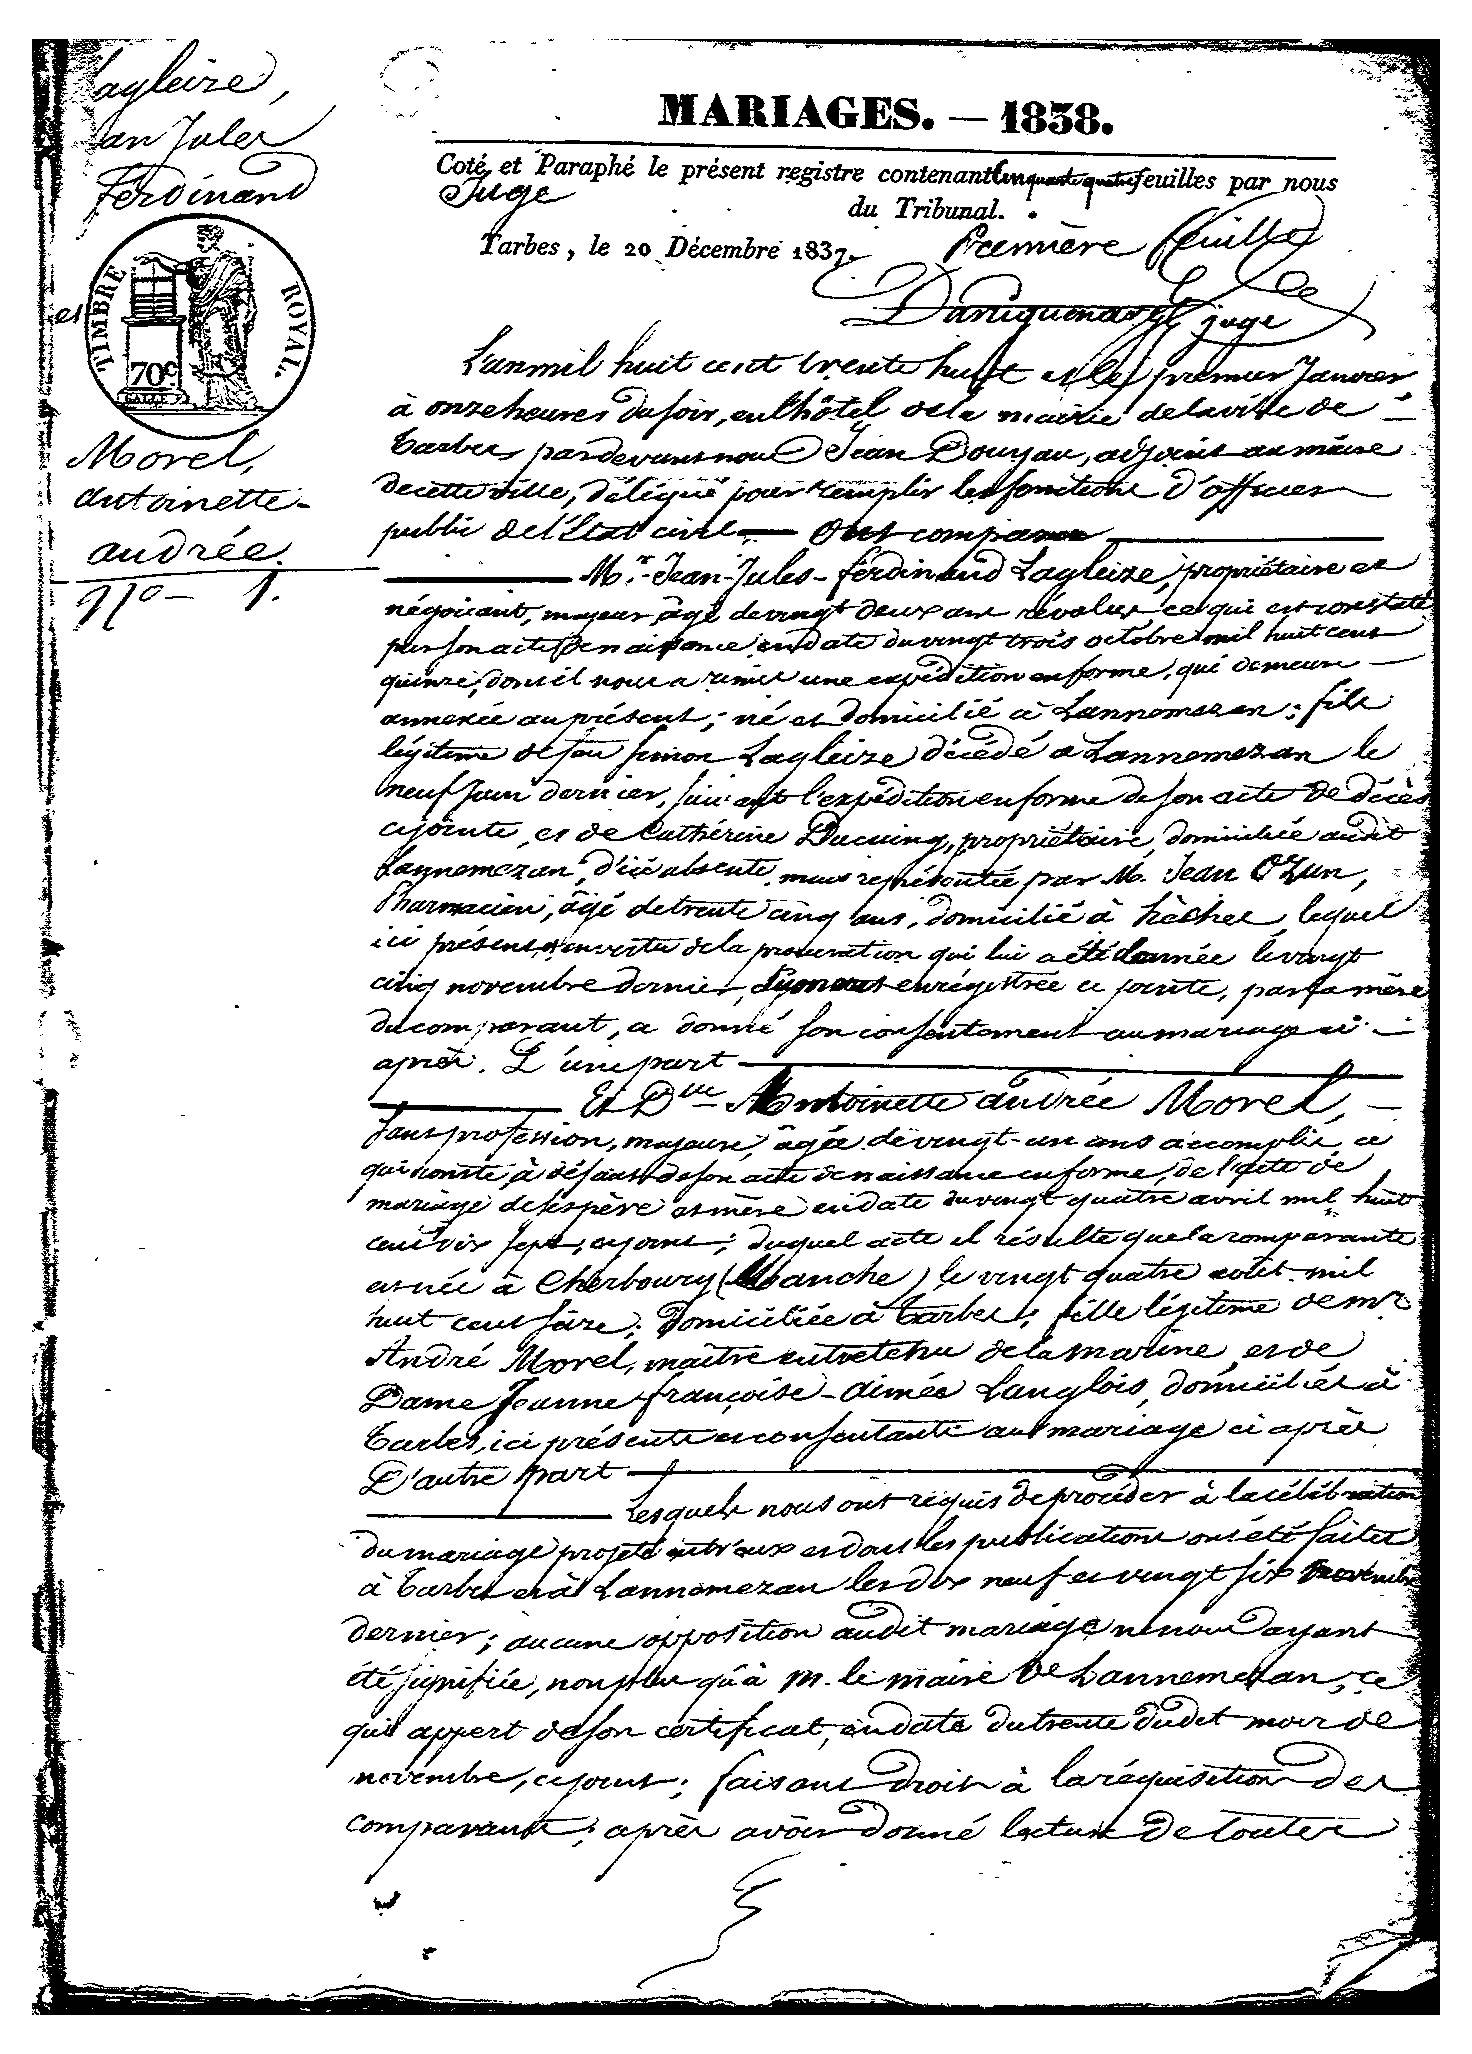 Lagleize,
Jean Jules
Ferdinand
TIMBRE ROYAL.
70c
et
Morel,
antoinette-
andrée.
No - 1.
MARIAGES. — 1838.
Coté et Paraphé le présent registre contenant Cinquante quatre feuilles par nous
Juge du Tribunal.
Tarbes, le 20 Décembre 1837. Première feuille
juge
L'an mil huit cent trente huit et le premier Janvier
à onze heures du soir, en l'hôtel de la mairie de la ville de
Tarbes pardevant nous Jean Douyau, adjoint au maire
de cette ville, délégué pour remplir les fonctions d'officier
public de l'État civil — Ont comparu
Mr. Jean-Jules-Ferdinand Lagleize, propriétaire et
négociant, majeur, âgé de vingt deux ans révolus, ce qui est constaté
par son acte de naissance en date du vingt trois octobre mil huit cent
quinze, dont il nous a remis une expédition en forme, qui demeure
annexée au présent; né et domicilié à Lannemezan; fils
légitime de feu Simon Lagleize décédé à Lannemezan le
neuf Juin dernier, suivant l'expédition en forme de son acte de décès
ci jointe, et de Cathérine Ducuing, propriétaire, domiciliée audit
Lannemezan, d'ici absente, mais représentée par M. Jean Ozun,
Pharmacien, âgé de trente cinq ans, domicilié à hèches, lequel
ici présent, en vertu de la procuration qui lui a été donnée le vingt
cinq novembre dernier, dûment enrégistrée ci jointe, par la mère
du comparant, a donné son consentement au mariage ci
après. D'une part
Et Dlle Antoinette andrée Morel,
sans profession, majeure, âgée de vingt-un ans accomplis, ce
qui conste, à défaut de son acte de naissance en forme, de l'acte de
mariage de ses père et mère en date du vingt quatre avril mil huit
cent dix sept, ci joint; duquel acte il résulte que la comparante
est née à Cherbourg (Manche) le vingt quatre août mil
huit cent seize; domiciliée à Tarbes; fille légitime de mr
André Morel, maître entretenu de la marine, et de
Dame Jeanne françoise-aimée Langlois, domiciliés à
Tarbes, ici présents et consentants au mariage ci après
D'autre part
Lesquels nous ont réquis de procéder à la célébration
du mariage projeté entr'eux et dont les publications ont été faites
à Tarbes et à Lannemezan les dix neuf et vingt six novembre
dernier; aucune opposition audit mariage ne nous ayant
été signifiée, non plus qu'à M. le maire de Lannemezan, ce
qui appert de son certificat, en date du trente dudit mois de
novembre, ci joint; faisant droit à la réquisition des
comparants; après avoir donné lecture de toutes